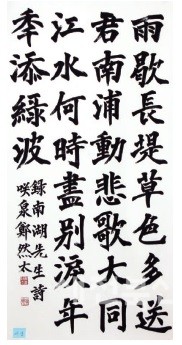 雨歇長堤草色多送
君南浦動悲歌大同
江水何時盡別淚年
秊添綠波
錄南湖先生詩
咲泉鄭然太